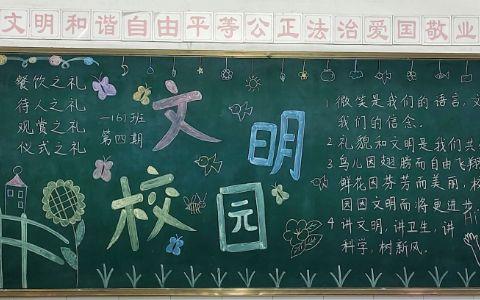 文明和谐自由平等公正法治爱国敬业
餐饮之礼
待人之礼
观赏之礼
仪式之礼
一161班
第四期
文明
校园
1 微笑是我们的语言,文
我们的信念.
2 礼貌和文明是我们共
3 鸟儿因翅膀而自由飞翔
鲜花因芬芳而美丽,校
园因文明而将更进步
4 讲文明,讲卫生,讲
科学,树新风.